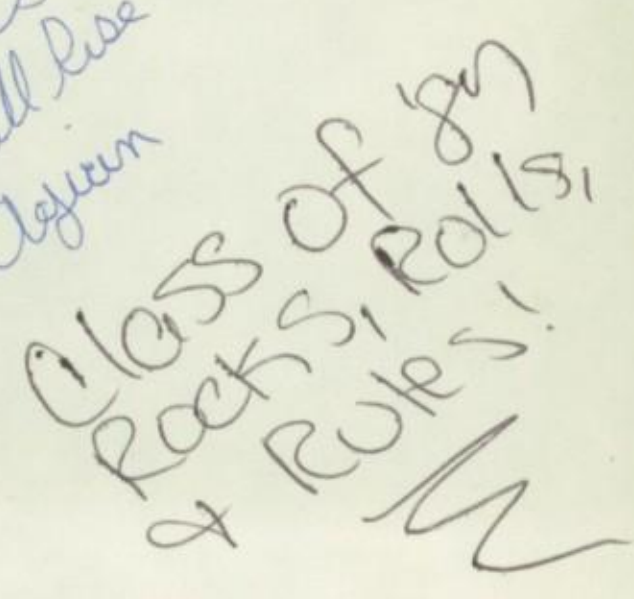 ll Rise
Again
Class of '87
Rocks, Rolls,
& Rules!